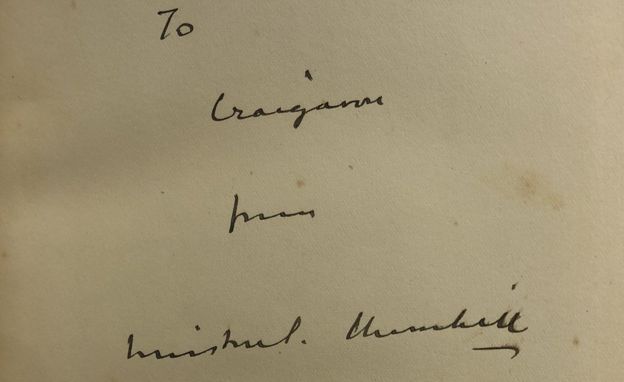 To
Craigavon
from
Winston S. Churchill